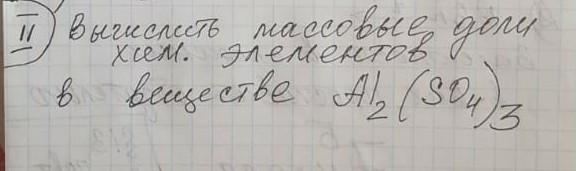 II Вычислить массовые доли
хим. элементов
в веществе Al₂(SO₄)₃